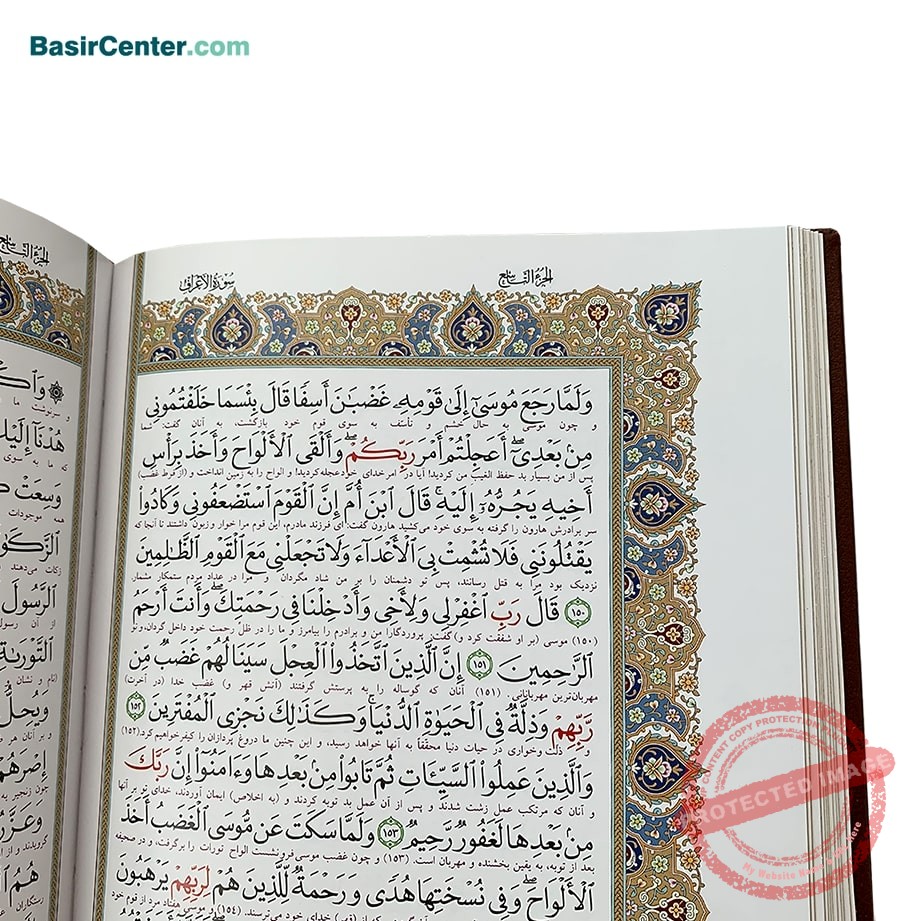 BasirCenter.com
الجزء التاسع
سورة الأعراف
وَلَمَّا رَجَعَ مُوسَىٰٓ إِلَىٰ قَوْمِهِۦ غَضْبَٰنَ أَسِفًا قَالَ بِئْسَمَا خَلَفْتُمُونِى
و چون موسی به حال خشم و تأسف به سوی قوم خود بازگشت، به آنان گفت: شما
مِنۢ بَعْدِىٓ ۖ أَعَجِلْتُمْ أَمْرَ رَبِّكُمْ ۖ وَأَلْقَى ٱلْأَلْوَاحَ وَأَخَذَ بِرَأْسِ
پس از من بسیار بد حفظ الغیب من کردید! آیا در امر خدای خود عجله کردید! و الواح را به زمین انداخت و (از فرط غضب)
أَخِيهِ يَجُرُّهُۥٓ إِلَيْهِ ۚ قَالَ ٱبْنَ أُمَّ إِنَّ ٱلْقَوْمَ ٱسْتَضْعَفُونِى وَكَادُوا۟
سر برادرش هارون را گرفته به سوی خود می‌کشید هارون گفت: ای فرزند مادرم، این قوم مرا خوار و زبون داشتند تا آنجا که
يَقْتُلُونَنِى فَلَا تُشْمِتْ بِىَ ٱلْأَعْدَآءَ وَلَا تَجْعَلْنِى مَعَ ٱلْقَوْمِ ٱلظَّٰلِمِينَ
نزدیک بود مرا به قتل رسانند، پس تو دشمنان را بر من شاد مگردان و مرا در عداد مردم ستمکار مشمار.
﴿١٥٠﴾ قَالَ رَبِّ ٱغْفِرْ لِى وَلِأَخِى وَأَدْخِلْنَا فِى رَحْمَتِكَ ۖ وَأَنتَ أَرْحَمُ
(۱۵۰) موسی (بر او شفقت کرد و) گفت: پروردگارا من و برادرم را بیامرز و ما را در ظلّ رحمت خود داخل گردان، و تو
ٱلرَّٰحِمِينَ ﴿١٥١﴾ إِنَّ ٱلَّذِينَ ٱتَّخَذُوا۟ ٱلْعِجْلَ سَيَنَالُهُمْ غَضَبٌ مِّن
مهربان‌ترین مهربانانی. (۱۵۱) آنان که گوساله را به پرستش گرفتند (آتش قهر و) غضب خدا (در آخرت)
رَّبِّهِمْ وَذِلَّةٌ فِى ٱلْحَيَوٰةِ ٱلدُّنْيَا ۚ وَكَذَٰلِكَ نَجْزِى ٱلْمُفْتَرِينَ ﴿١٥٢﴾
و ذلت و خواری در حیات دنیا محققاً به آنها خواهد رسید، و این چنین ما دروغ پردازان را کیفر خواهیم کرد. (۱۵۲)
وَٱلَّذِينَ عَمِلُوا۟ ٱلسَّيِّـَٔاتِ ثُمَّ تَابُوا۟ مِنۢ بَعْدِهَا وَءَامَنُوٓا۟ إِنَّ رَبَّكَ
و آنان که مرتکب عمل زشت شدند و پس از آن عمل بد توبه کردند و (به اخلاص) ایمان آوردند، خدای تو بر آنها
مِنۢ بَعْدِهَا لَغَفُورٌ رَّحِيمٌ ﴿١٥٣﴾ وَلَمَّا سَكَتَ عَن مُّوسَى ٱلْغَضَبُ أَخَذَ
بعد از توبه، به یقین بخشنده و مهربان است. (۱۵۳) و چون غضب موسی فرونشست الواح تورات را برگرفت، و در صحیفه
ٱلْأَلْوَاحَ ۖ وَفِى نُسْخَتِهَا هُدًى وَرَحْمَةٌ لِّلَّذِينَ هُمْ لِرَبِّهِمْ يَرْهَبُونَ
(۱۵۴) و موسی هفتاد مرد از قوم خود
الجزء التاسع
هُدْنَآ إِلَيْكَ
که ما به سوی
وَسِعَتْ
همه موجودات
ٱلزَّكَوٰةَ
زکات می‌دهند
ٱلرَّسُولَ
از آن رسول
ٱلتَّوْرَىٰةِ
(نام و نشان
وَيُحِلُّ
و بر آنان هر
إِصْرَهُمْ
چون زنجیر به
وَعَزَّرُوهُ
گرویدند و از
هُمُ
رستگاران
CONTENT COPY PROTECTION
PROTECTED IMAGE
My Website Name Here